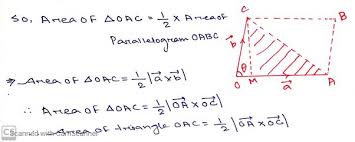 So, Area of ΔOAC = 1/2 × Area of
Parallelogram OABC.
⇒ Area of ΔOAC = 1/2 |a⃗ × b⃗|
∴ Area of ΔOAC = 1/2 |O⃗A × O⃗C|
Area of triangle OAC = 1/2 |O⃗A × O⃗C|
CS Scanned with CamScanner
C
B
b⃗
θ
O
M
a⃗
A